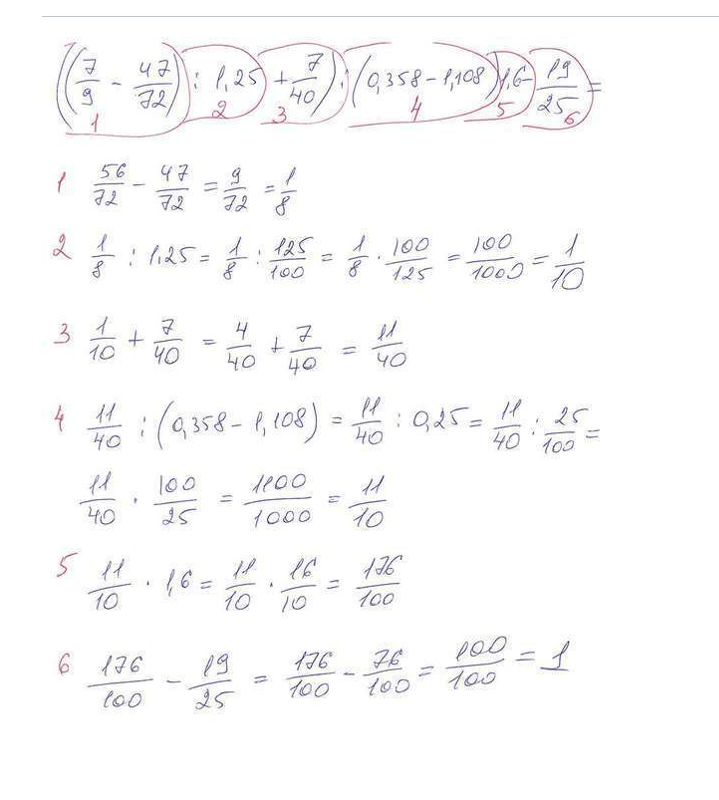 ((7/9 - 47/72) : 1,25 + 7/40) : (0,358 - 1,108) 1,6 - 19/25 =
1 2 3 4 5 6
1 56/72 - 47/72 = 9/72 = 1/8
2 1/8 : 1,25 = 1/8 : 125/100 = 1/8 · 100/125 = 100/1000 = 1/10
3 1/10 + 7/40 = 4/40 + 7/40 = 11/40
4 11/40 : (0,358 - 1,108) = 11/40 : 0,25 = 11/40 : 25/100 =
11/40 · 100/25 = 1100/1000 = 11/10
5 11/10 · 1,6 = 11/10 · 16/10 = 176/100
6 176/100 - 19/25 = 176/100 - 76/100 = 100/100 = 1